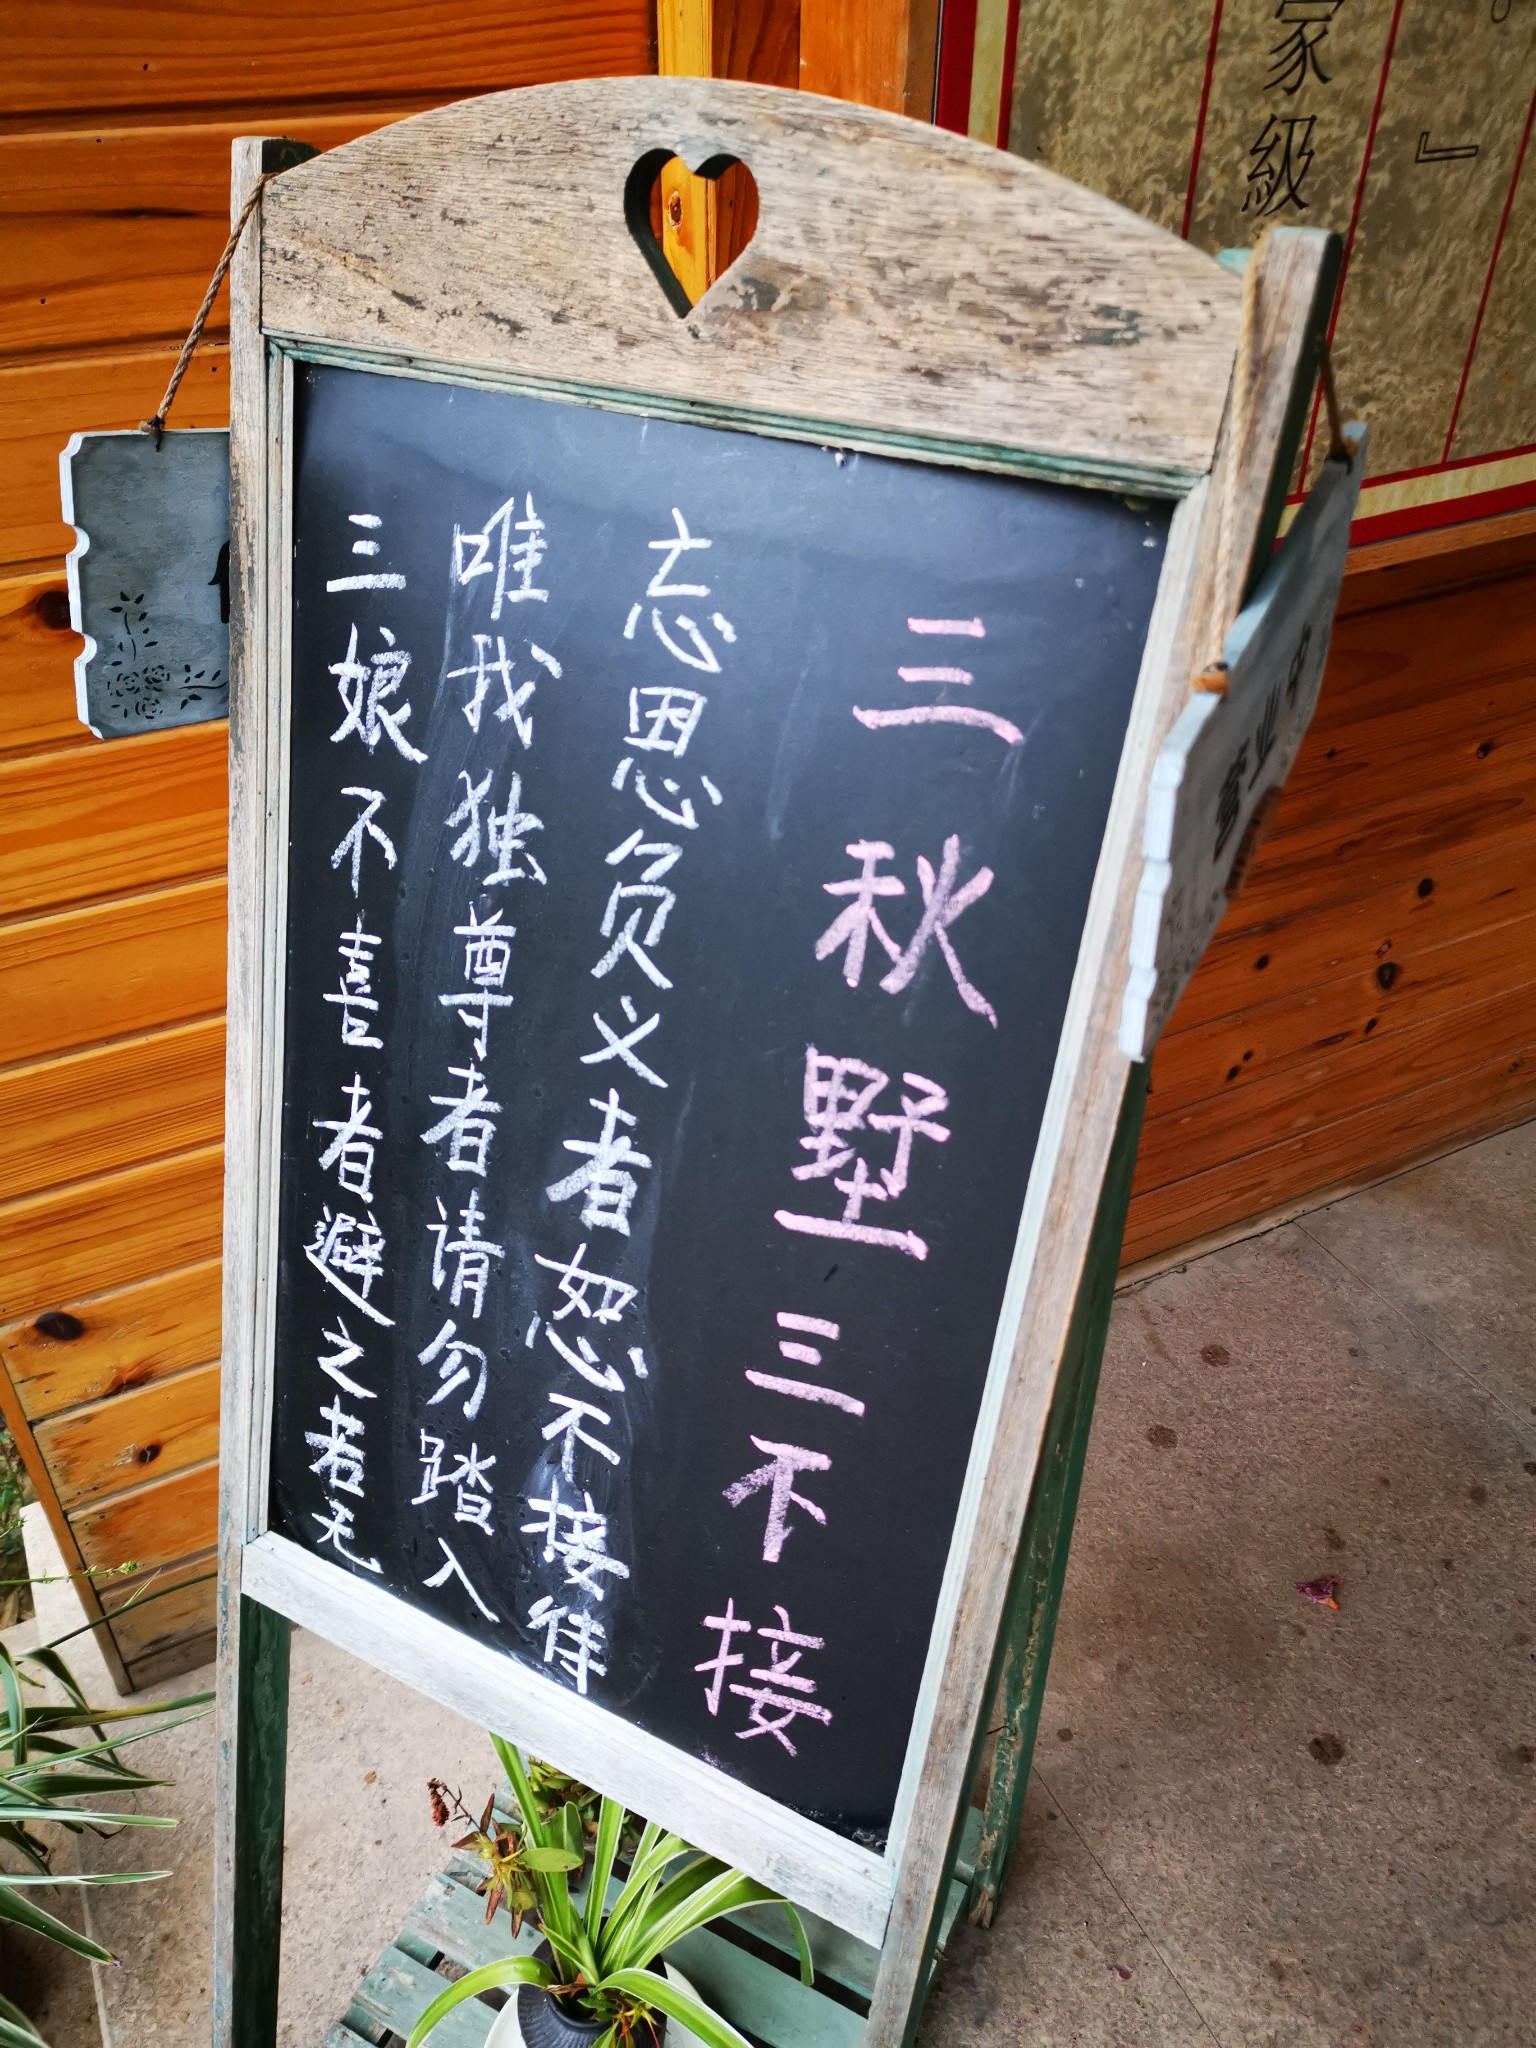 三秋墅三不接
忘恩负义者恕不接待
唯我独尊者请勿踏入
三娘不喜者避之若无
营业中
家級
』